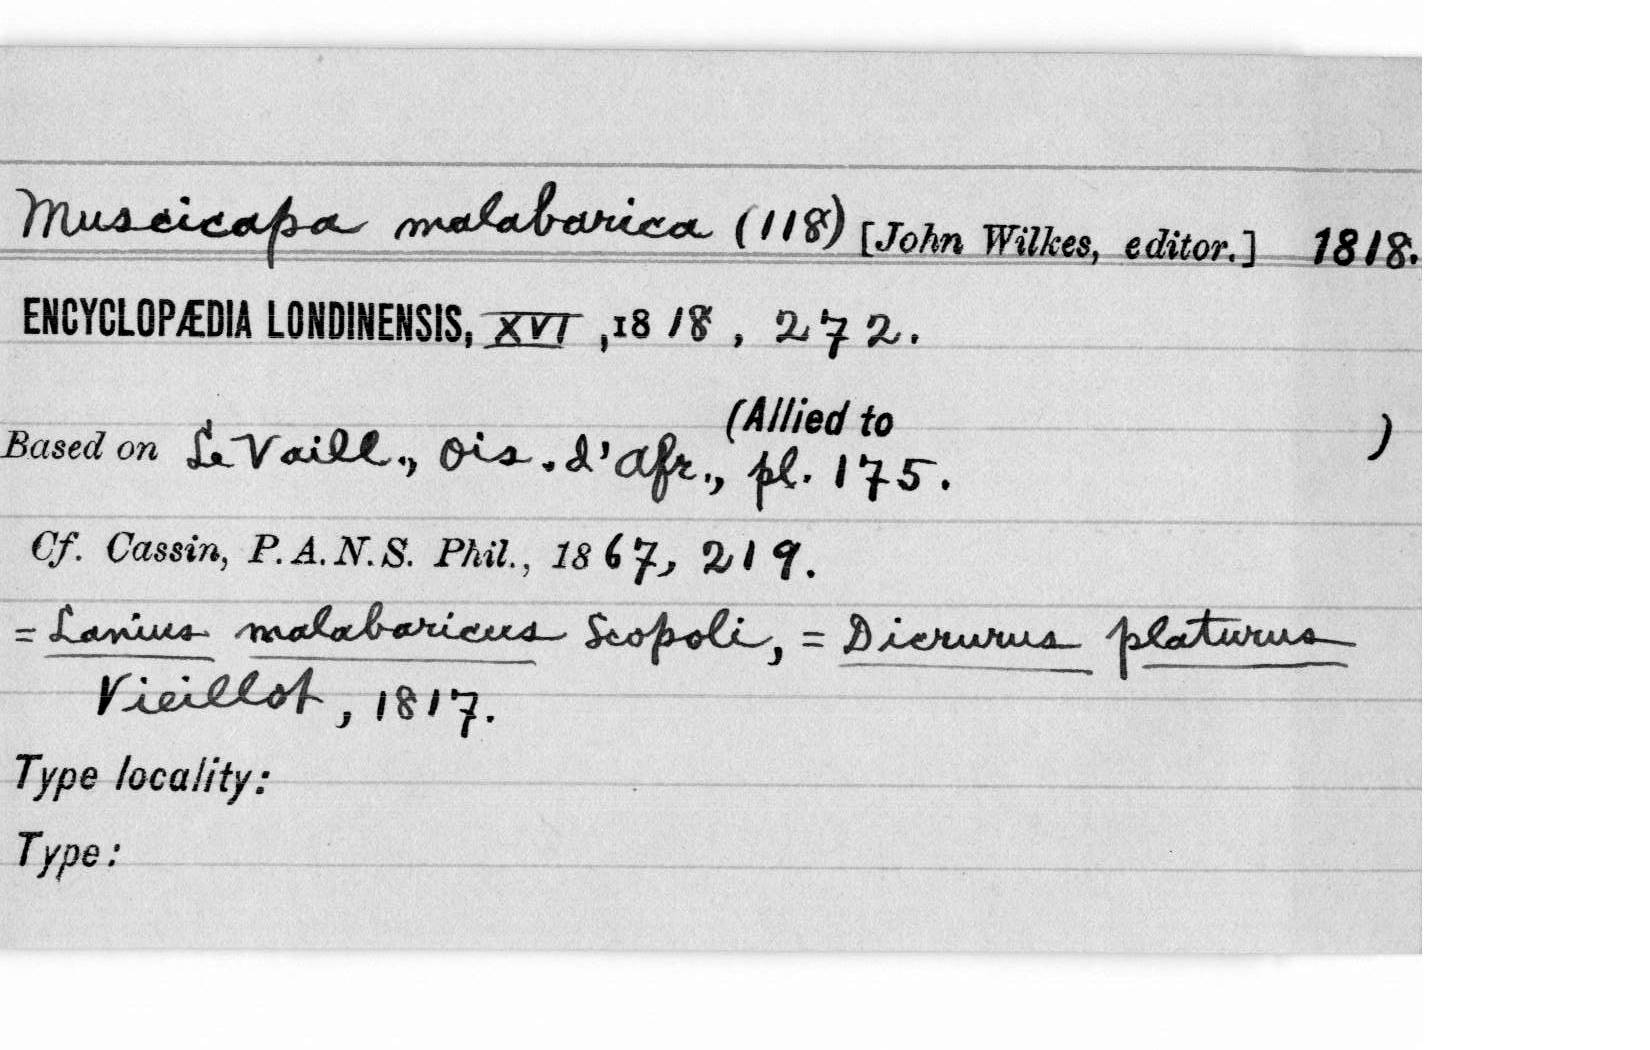 Muscicapa malabarica (118) [John Wilkes, editor.] 1818.
ENCYCLOPÆDIA LONDINENSIS, XVI, 1818, 272.
(Allied to )
Based on Le Vaill., Ois. d'Afr., pl. 175.
Cf. Cassin, P. A. N. S. Phil., 1867, 219.
= Lanius malabaricus Scopoli, = Dicrurus platurus
Vieillot, 1817.
Type locality:
Type: